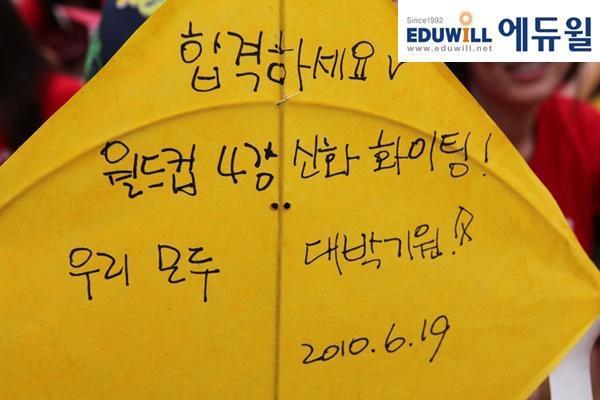 Since1992
EDUWILL 에듀윌
www.eduwill.net
합격하세요
월드컵 4강 신화 화이팅!
우리 모두 대박기원!
2010.6.19